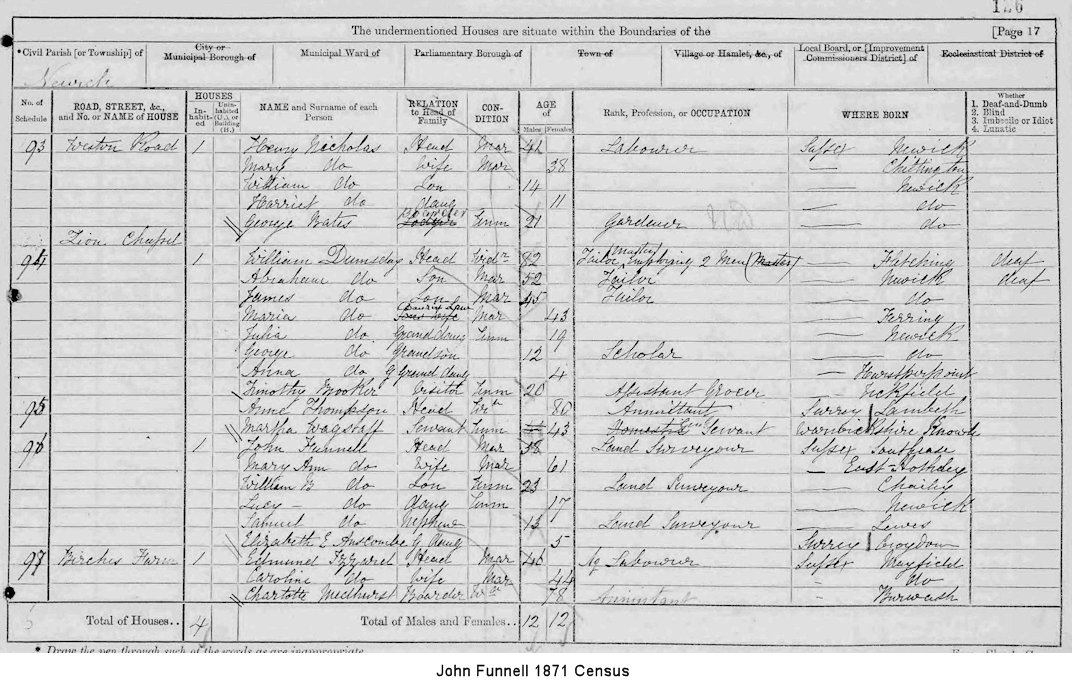 126
The undermentioned Houses are situate within the Boundaries of the [Page 17
*Civil Parish [or Township] of City or Municipal Borough of Municipal Ward of Parliamentary Borough of Town of Village or Hamlet, &c., of Local Board, or [Improvement Commissioners District] of Ecclesiastical District of
Newick
No. of Schedule ROAD, STREET, &c., and No. or NAME of HOUSE HOUSES Inhabited Uninhabited (U.), or Building (B.) NAME and Surname of each Person RELATION to Head of Family CONDITION AGE Males Females Rank, Profession, or OCCUPATION WHERE BORN Whether 1. Deaf-and-Dumb 2. Blind 3. Imbecile or Idiot 4. Lunatic
93 Road 1 Henry Nicholas Head Mar Labourer Sussex Newick
Mary do Wife Mar 38 — Chiltington
William do Son 14 — Newick
Harriet do daug 11 — do
George Bates Boarder Unm 21 Gardener — do
Zion Chapel
94 1 William Dumsday Head Widr 82 Tailor Master Employing 2 Men (Master) — deaf
Abraham do Son Mar 52 Tailor — Newick deaf
James do Son Mar 45 Tailor — do
Maria do Mar 43 — Ferring
Julia do Grand daug Unm 19 — Newick
George do Grandson 12 Scholar — do
Anna do G Grand daug 4 — Hurstpierpoint
Timothy Booker Visitor Unm 20 Assistant Grocer — Uckfield
95 Anne Thompson Head 80 Annuitant Surrey Lambeth
Martha Wagstaff Servant Unm 43 Domestic Servant Knowle
96 1 John Funnell Head Mar 58 Land Surveyour Sussex Southease
Mary Ann do Wife Mar 61 — East Hothley
William B do Son Unm 23 Land Surveyour — Chailey
Lucy do daug Unm 17 — Newick
Samuel do Nephew Land Surveyour — Lewes
Elizabeth E Anscombe G daug 5 Surrey Croydon
97 Birches Farm 1 Edmund Izzard Head Mar 46 Ag Labourer Sussex Mayfield
Caroline do Wife Mar 44 do
Charlotte Medhurst Boarder 78 Annuitant Burwash
Total of Houses.. 4 Total of Males and Females.. 12 12
* Draw the pen through such of the words as are inappropriate.
John Funnell 1871 Census